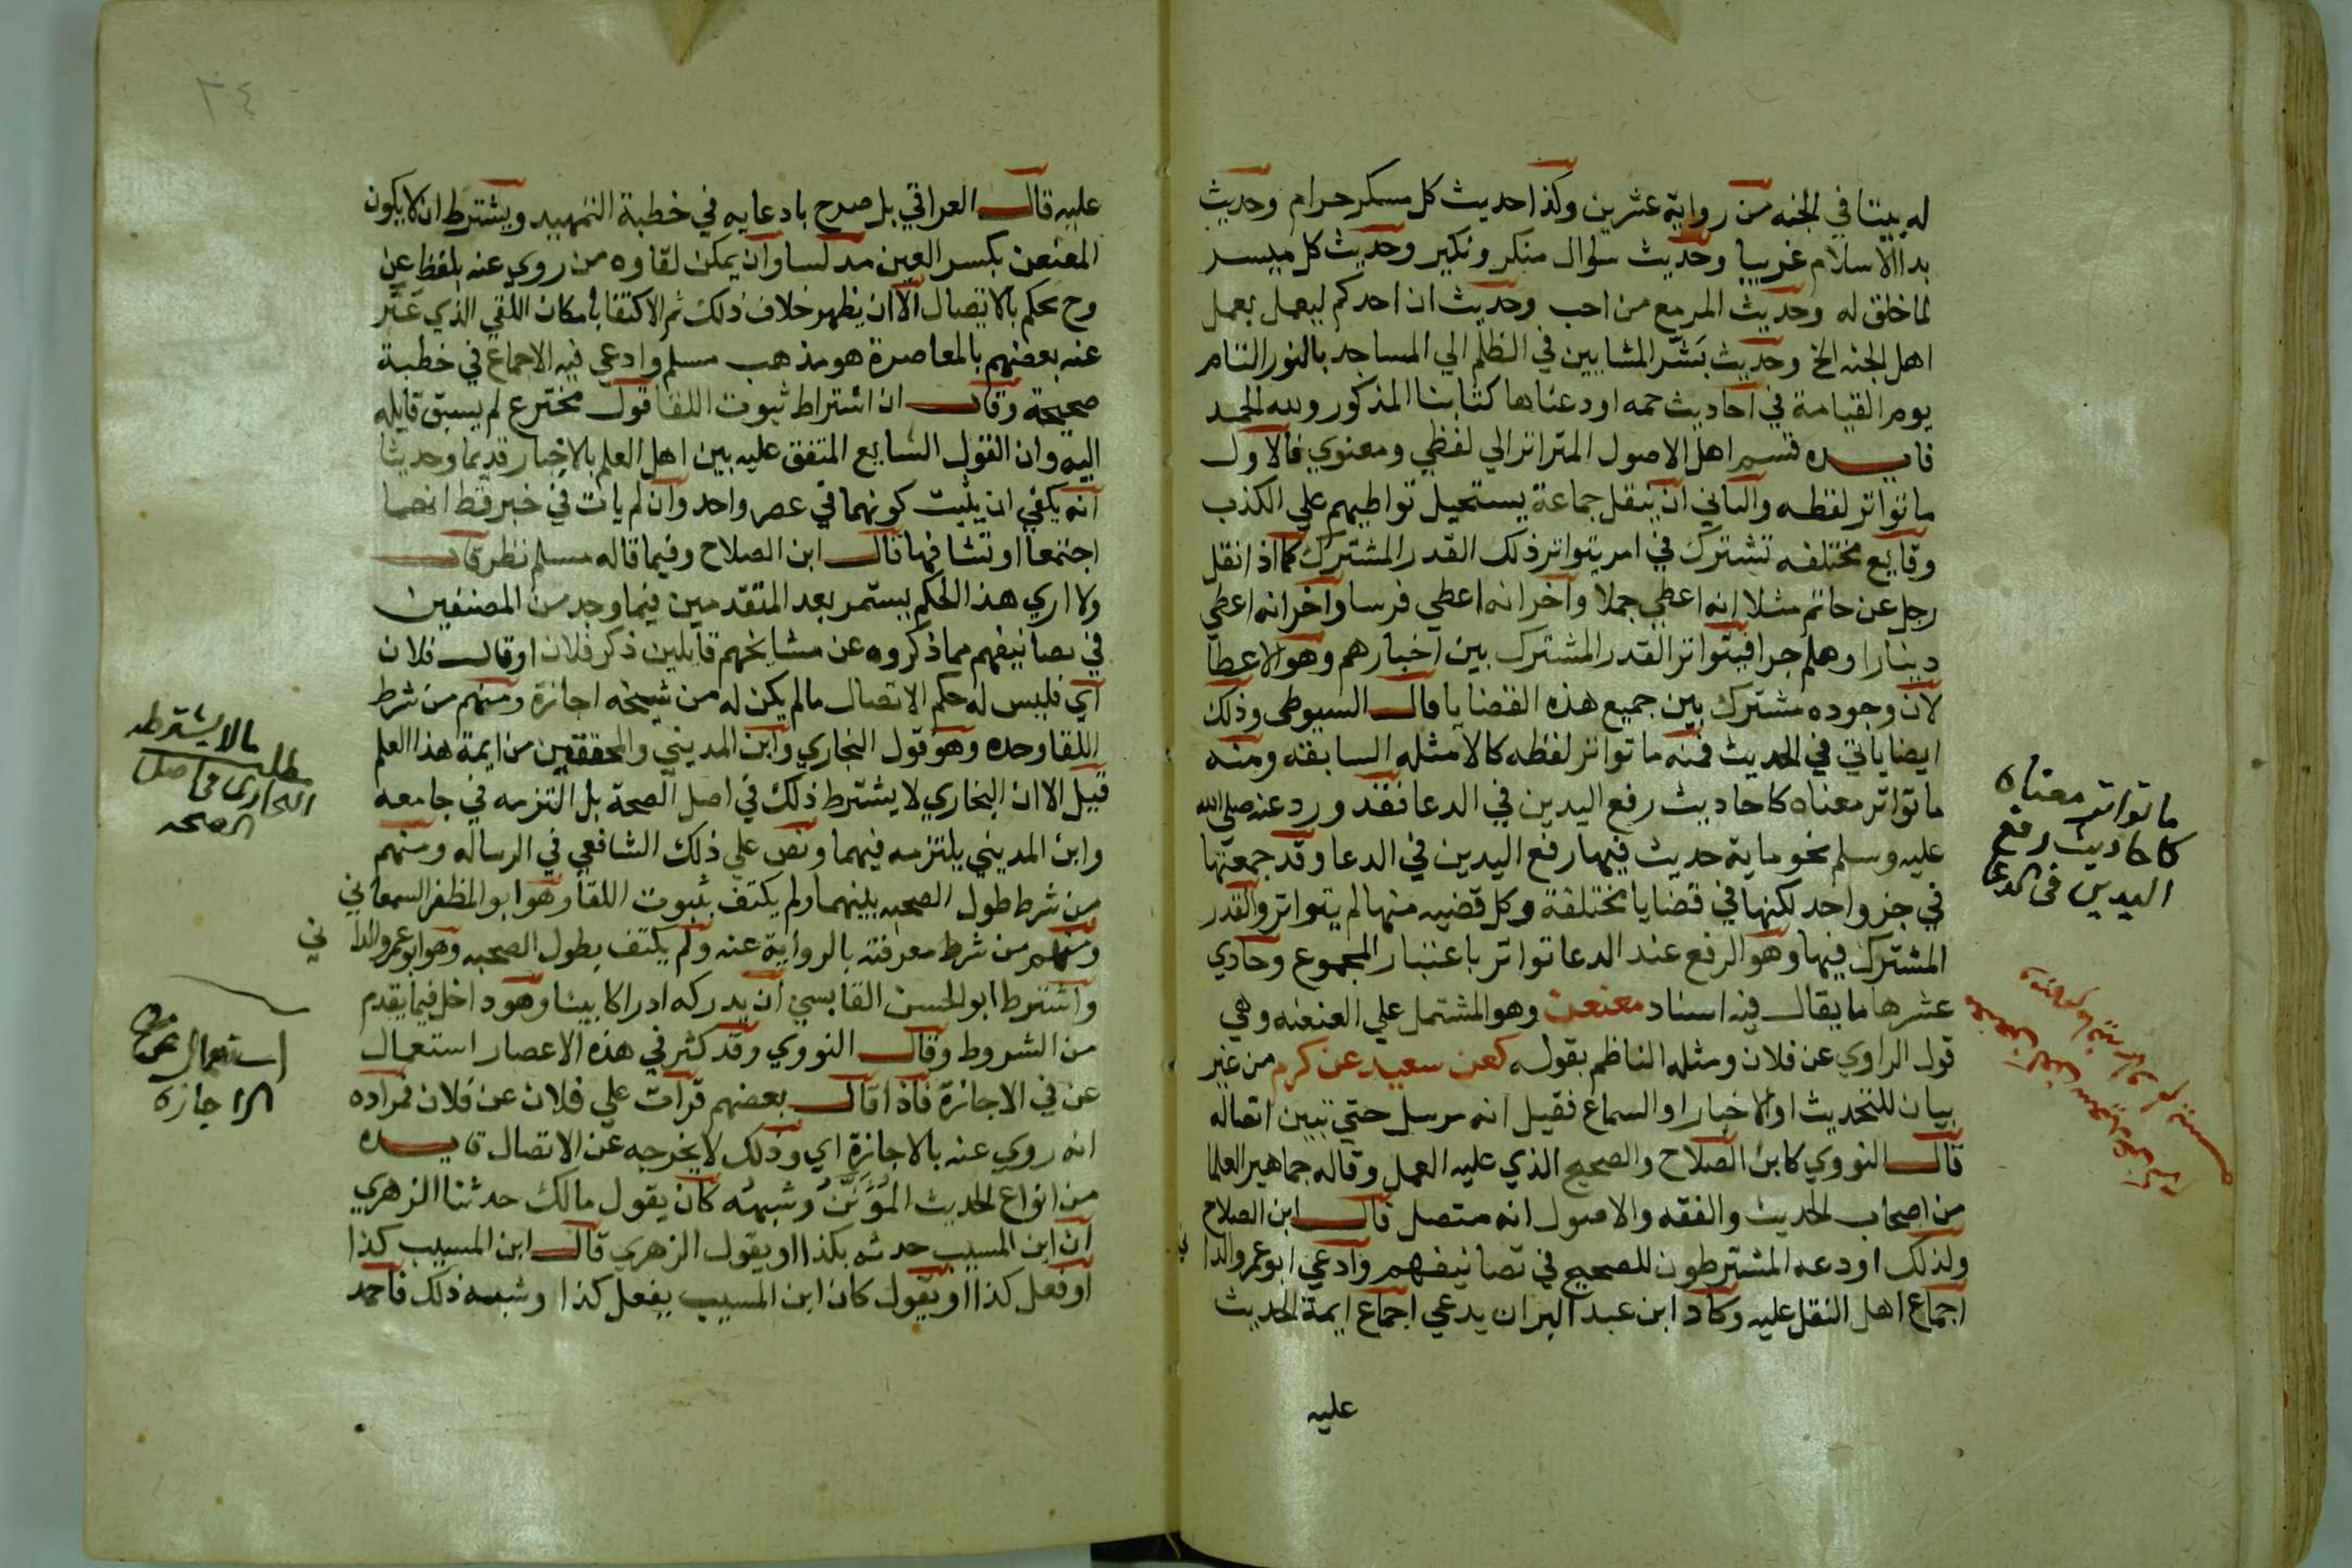 له بيتا في الجنه من رواية عشرين وكذا حديث كل مسكر حرام وحديث
بدا الاسلام غريبا وحديث سوال منكر ونكير وحديث كل ميسر
لما خلق له وحديث المر مع من احب وحديث ان احدكم ليعمل بعمل
اهل الجنه الخ وحديث بشر المشايين في الظلم الي المساجد بالنور التام
يوم القيامة في احاديث جمه اودعناها كتابنا المذكور ولله الحمد
فايده قسم اهل الاصول المتواتر الي لفظي ومعنوي فالاول
ما تواتر لفظه والثاني ان ينقل جماعة يستحيل تواطيهم علي الكذب
وقايع مختلفه تشترك في امر يتواتر ذلك القدر المشترك كما اذا نقل
رجل عن حاتم مثلا انه اعطي جملا وآخر انه اعطي فرسا وآخر انه اعطي
دينارا وهلم جرا فيتواتر القدر المشترك بين اخبارهم وهو الاعطا
لان وجوده مشترك بين جميع هذه القضايا قال السيوطي وذلك
ايضا ياتي في الحديث فمنه ما تواتر لفظه كالامثله السابقه ومنه
ما تواتر معناه كاحاديث رفع اليدين في الدعا فقد ورد عنه صلي الله
عليه وسلم نحو ماية حديث فيها رفع اليدين في الدعا وقد جمعتها
في جزء واحد لكنها في قضايا مختلفة وكل قضيه منها لم يتواتر والقدر
المشترك فيها وهو الرفع عند الدعا تواتر باعتبار المجموع وحادي
عشرها ما يقال فيه اسناد معنعن وهو المشتمل علي العنعنه وهي
قول الراوي عن فلان ومثله الناظم بقوله كعن سعيد عن كرم من غير
بيان للتحديث او الاخبار او السماع فقيل انه مرسل حتي تبين اتصاله
قال النووي كابن الصلاح والصحيح الذي عليه العمل وقاله جماهير العلما
من اصحاب الحديث والفقه والاصول انه متصل قال ابن الصلاح
ولذلك اودعه المشترطون للصحيح في تصانيفهم وادعي ابو عمرو الدا
ني
اجماع اهل النقل عليه وكاد ابن عبد البر ان يدعي اجماع ايمة الحديث
عليه
ما تواتر معناه
كاحاديث رفع
اليدين في الدعا
٢٤
عليه قال العراقي بل صرح بادعايه في خطبة التمهيد ويشترط ان لا يكون
المعنعن بكسر العين مدلسا وان يمكن لقاوه من روي عنه بلفظ عن
وح يحكم بالاتصال الا ان يظهر خلاف ذلك ثم الاكتفا بامكان اللقي الذي عبر
عنه بعضهم بالمعاصرة هو مذهب مسلم وادعي فيه الاجماع في خطبة
صحيحة وقال ان اشتراط ثبوت اللقا قول مخترع لم يسبق قايله
اليه وان القول الشايع المتفق عليه بين اهل العلم بالاخبار قديما وحديثا
انه يكفي ان يثبت كونهما في عصر واحد وان لم يات في خبر قط انهما
اجتمعا او تشافها قال ابن الصلاح وفيما قاله مسلم نظر قال
ولا اري هذا الحكم يستمر بعد المتقدمين فيما وجد من المصنفين
في تصانيفهم مما ذكروه عن مشايخهم قايلين ذكر فلان او قال فلان
اي فليس له حكم الاتصال ما لم يكن له من شيخه اجازة ومنهم من شرط
اللقا وحده وهو قول البخاري وابن المديني والمحققين من ايمة هذا العلم
قيل الا ان البخاري لا يشترط ذلك في اصل الصحة بل التزمه في جامعه
وابن المديني يلتزمه فيهما ونص علي ذلك الشافعي في الرساله ومنهم
من شرط طول الصحبه بينهما ولم يكتف بثبوت اللقا وهو ابو المظفر السمعاني
ومنهم من شرط معرفته بالرواية عنه ولم يكتف بطول الصحبه وهو ابو عمرو الدا ني
واشترط ابو الحسن القابسي ان يدركه ادراكا بينا وهو داخل فيما يقدم
من الشروط وقال النووي وقد كثر في هذه الاعصار استعمال
عن في الاجازة فاذا قال بعضهم قرات علي فلان عن فلان فمراده
انه روي عنه بالاجازة اي وذلك لا يخرجه عن الاتصال فايده
من انواع الحديث المؤنن وشبهه كان يقول مالك حدثنا الزهري
ان ابن المسيب حدثه بكذا او يقول الزهري قال ابن المسيب كذا
او فعل كذا او يقول كان ابن المسيب يفعل كذا وشبه ذلك فاحمد
مطلب
ما لا يشترطه
البخاري في اصل
الصحه
استعمال عن في
الاجازه